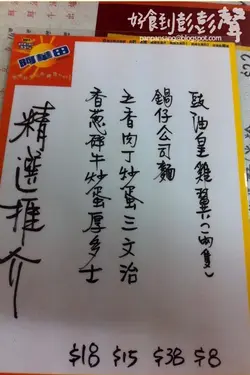 好食到彭彭聲
panpansang@blogspot.com
阿華田
豉油皇雞翼(兩隻)
$8
鍋仔公司麵
$38
五香肉丁炒蛋三文治
$15
香蔥碎牛炒蛋厚多士
$18
精選推介